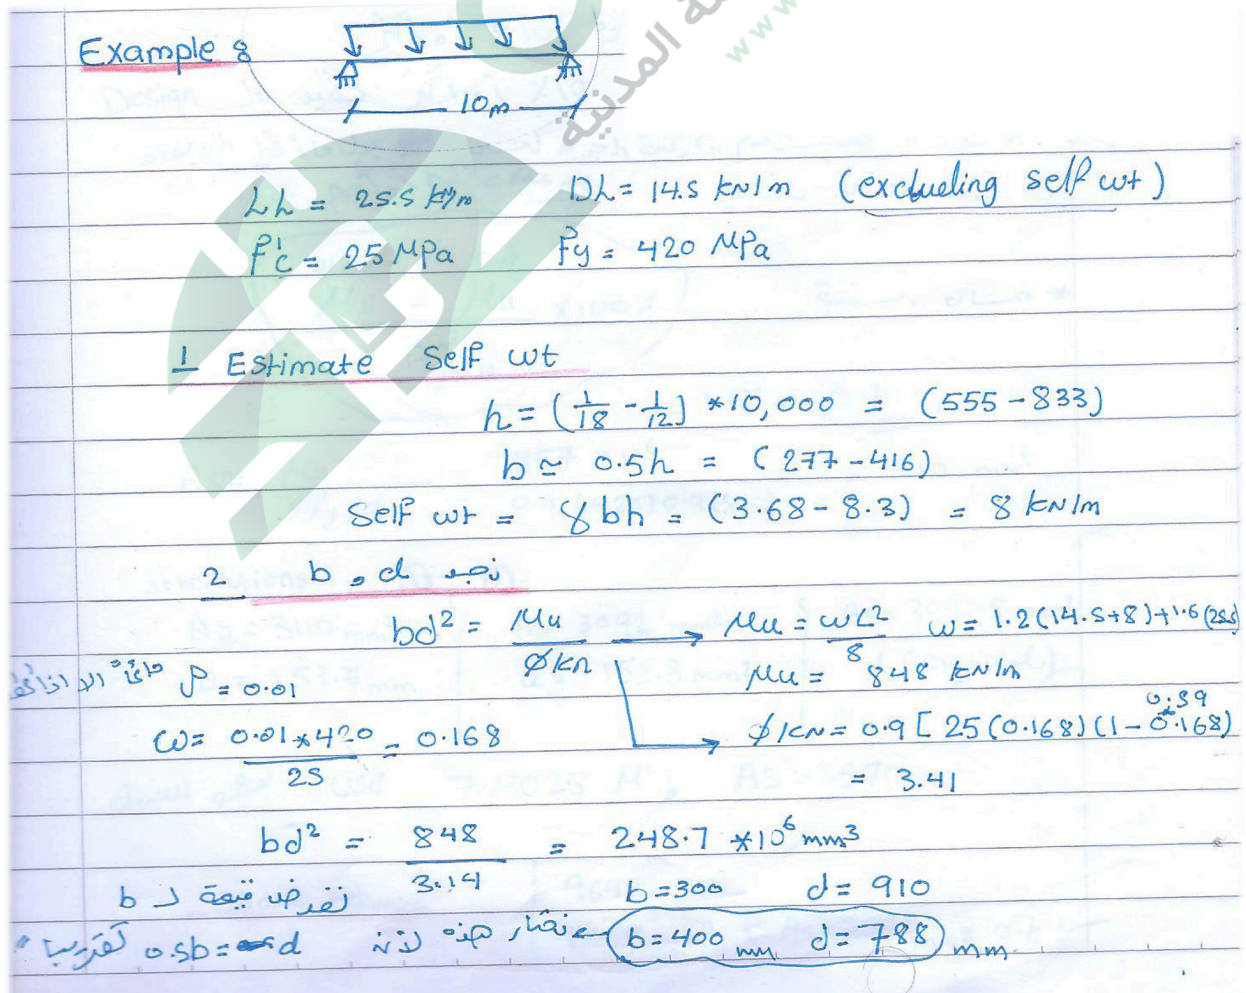 Example :
10m
LL = 25.5 kN/m DL = 14.5 kN/m (exclueling self wt)
f'c = 25 MPa fy = 420 MPa
1 Estimate Self wt
h = (1/18 - 1/12) *10,000 = (555 - 833)
b ≃ 0.5h = (277 - 416)
Self wt = γbh = (3.68 - 8.3) = 8 kN/m
2 نجد b, d
bd² = Mu / ØKn → Mu = wL²/8 w = 1.2(14.5+8)+1.6(25.5)
Mu = 848 kN/m
ρ = 0.01
ØKN = 0.9 [25(0.168)(1 - 0.59 * 0.168)
ω = 0.01*420 / 25 = 0.168
= 3.41
bd² = 848 / 3.14 = 248.7 *10⁶ mm³
نفرض قيمة لـ b b=300 d= 910
b=400 mm d=788 mm نختار هذه لأن 0.5b = d تقريباً